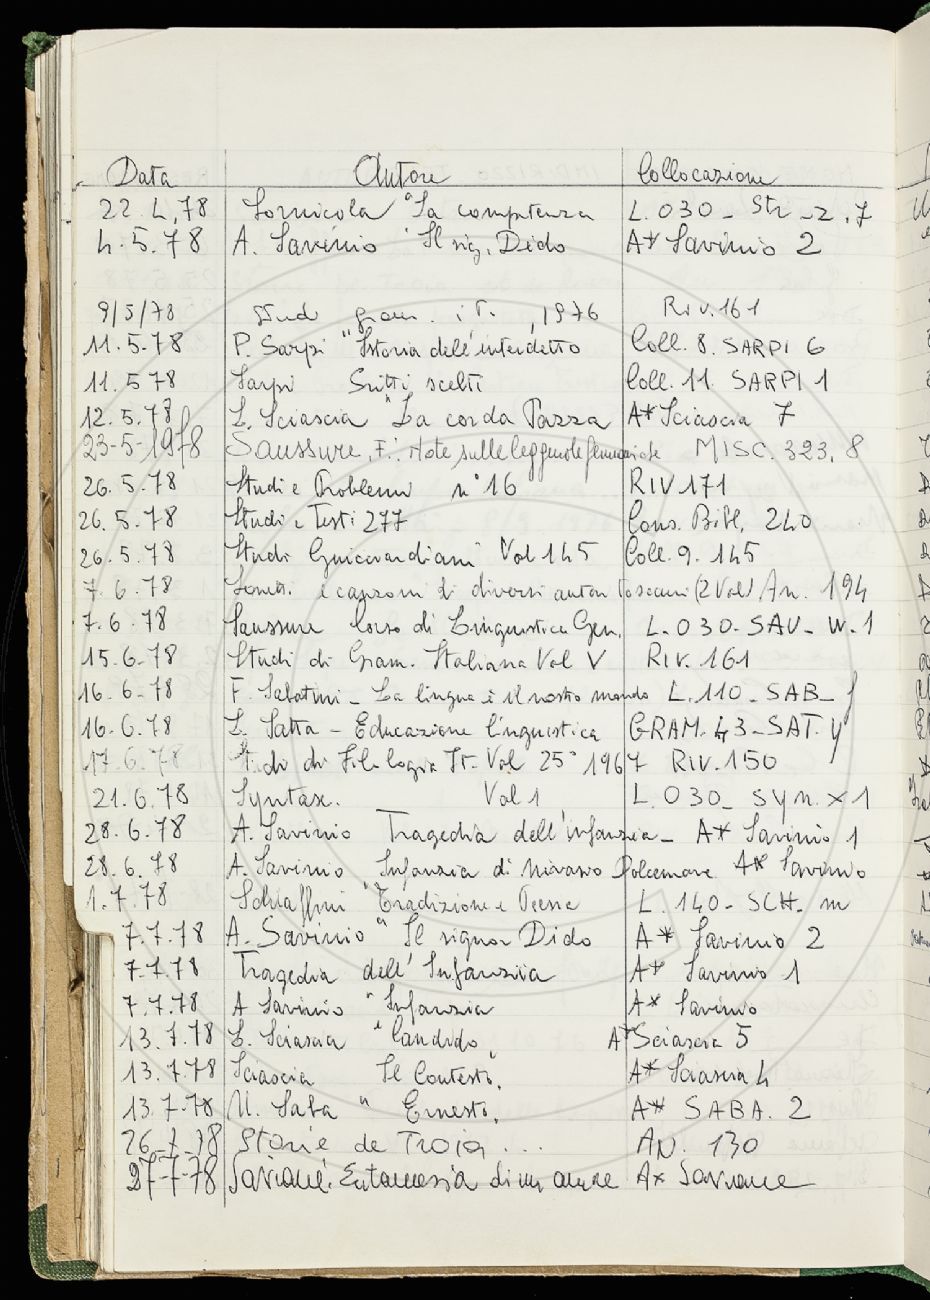 Data Autore Collocazione
22.4.78 Sornicola "La competenza L.030_ Str_2.7
4.5.78 A. Savinio "Il sig. Dido A* Savinio 2
9/5/78 Stud gram. it. , 1976 Riv.161
11.5.78 P. Sarpi "Istoria dell'interdetto Coll. 8. SARPI 6
11.5 78 Sarpi Scritti scelti Coll. 11. SARPI 1
12.5.78 L. Sciascia "La corda Pazza A* Sciascia 7
23-5-1978 Saussure, F.: Note sulle leggende germaniche MISC. 323.8
26.5.78 Studi e Problemi n° 16 RIV 171
26.5.78 Studi e Testi 277 Cons. Bibl. 240
26.5.78 Studi Guicciardiani Vol 145 Coll. 9. 145
7.6.78 e canzoni di diversi autori toscani (2 Vol) An. 194
7.6.78 Saussure Corso di Linguistica Gen. L.030-SAU-W.1
15.6.78 Studi di Gram. Italiana Vol V RIV. 161
16.6.78 F. Sabatini - La lingua e il nostro mondo L.110_SAB_f
16.6.78 L. Satta - Educazione linguistica GRAM. 43_SAT. y
17.6.78 Studi di Filologia It. Vol 25° 1967 RIV. 150
21.6.78 Syntax. Vol 1 L.030_ Syn. x 1
28.6.78 A. Savinio Tragedia dell'infanzia - A* Savinio 1
28.6.78 A. Savinio Infanzia di Nivasio Dolcemare A* Savinio
1.7.78 Schiaffini "Tradizione e Poesia L. 140- SCH. m
7.7.78 A. Savinio "Il signor Dido A* Savinio 2
7.7.78 Tragedia dell'Infanzia A* Savinio 1
7.7.78 A Savinio "Infanzia A* Savinio
13.7.78 L. Sciascia "Candido" A* Sciascia 5
13.7.78 Sciascia Il Contesto. A* Sciascia 4
13.7.78 U. Saba " Ernesto. A* SABA. 2
26-7-78 Storie de Troia... AN. 130
27-7-78 di un amore A*